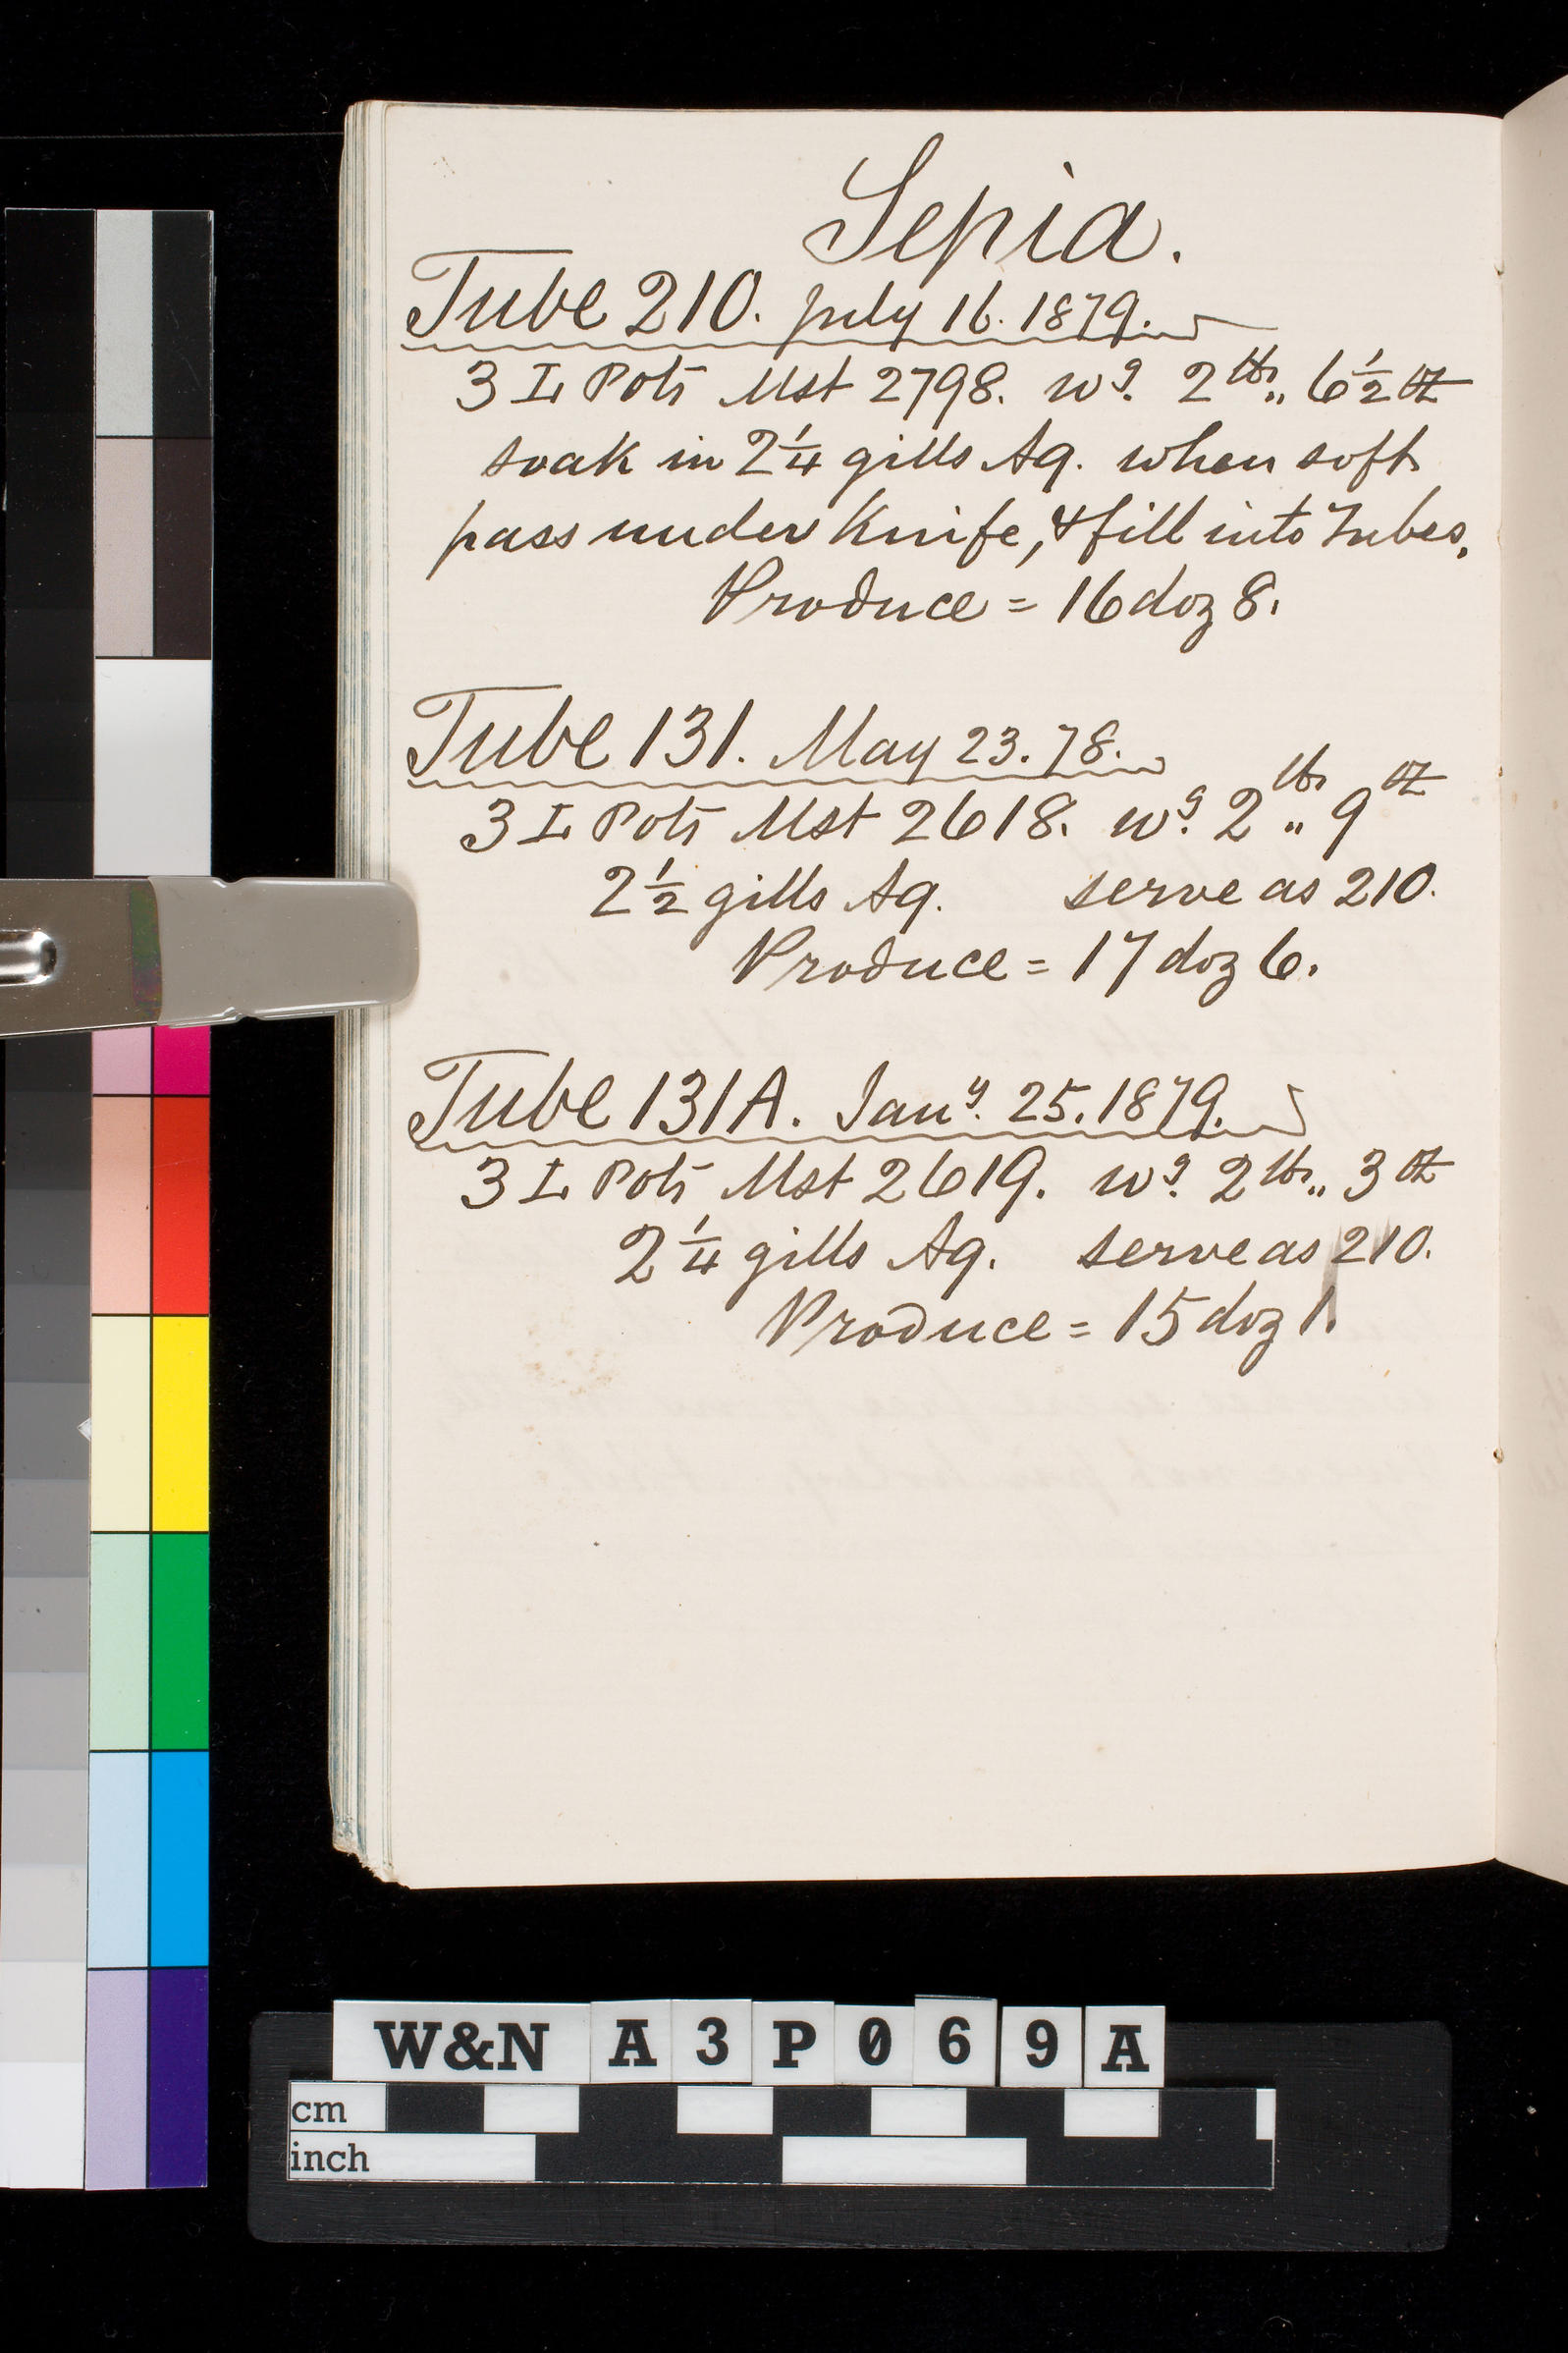 Sepia.
Tube 210. July 16. 1879.
3 L Pots Mst 2798. wg. 2 lbs,, 6½ oz
soak in 2¼ gills Aq. when soft
pass under Knife, & fill into Tubes.
Produce = 16 doz 8.
Tube 131. May 23. 78.
3 L Pots Mst 2618. wg. 2 lbs,, 9 oz
2½ gills Aq. serve as 210.
Produce = 17 doz 6.
Tube 131A. Jany. 25. 1879.
3 L Pots Mst 2619. wg. 2 lbs,, 3 oz
2¼ gills Aq. serve as 210.
Produce = 15 doz 1.
W&N A3P069A
cm
inch